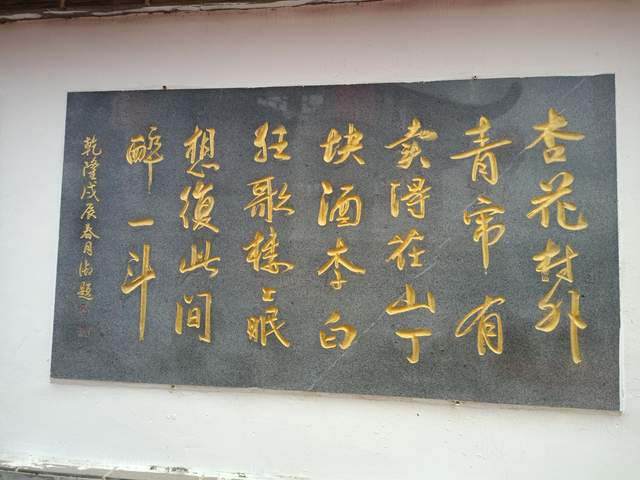 杏花村外
青帘有
卖得茌山丁
块酒李白
狂歌楼上眠
想復此间
醉一斗
乾隆戊辰春月御题